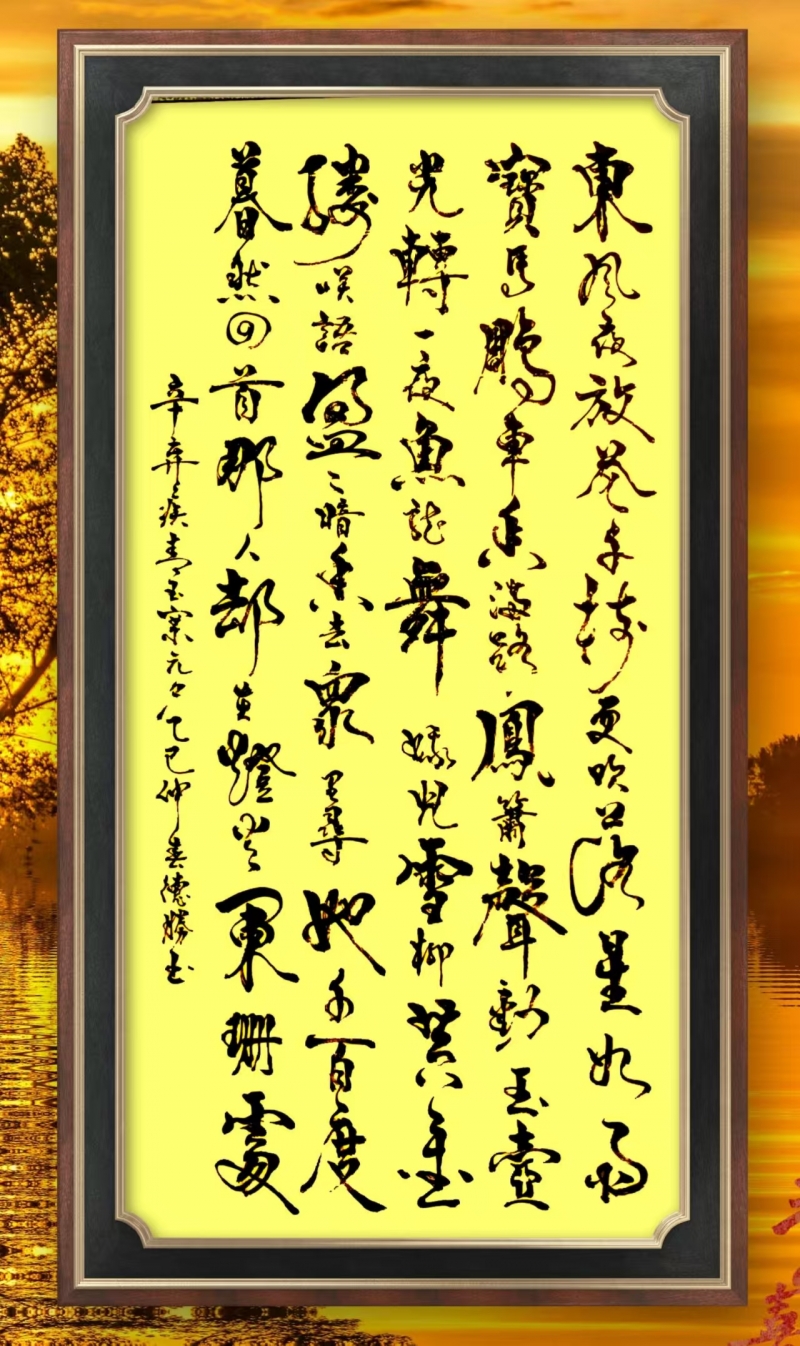 東風夜放花千樹更吹落星如雨
寶馬雕車香滿路鳳簫聲動玉壺
光轉一夜魚龍舞蛾兒雪柳黃金
縷咲語盈々暗香去眾里尋她千百度
暮然回首那人卻在燈火闌珊處
辛棄疾青玉案元夕乙巳仲春德勝書